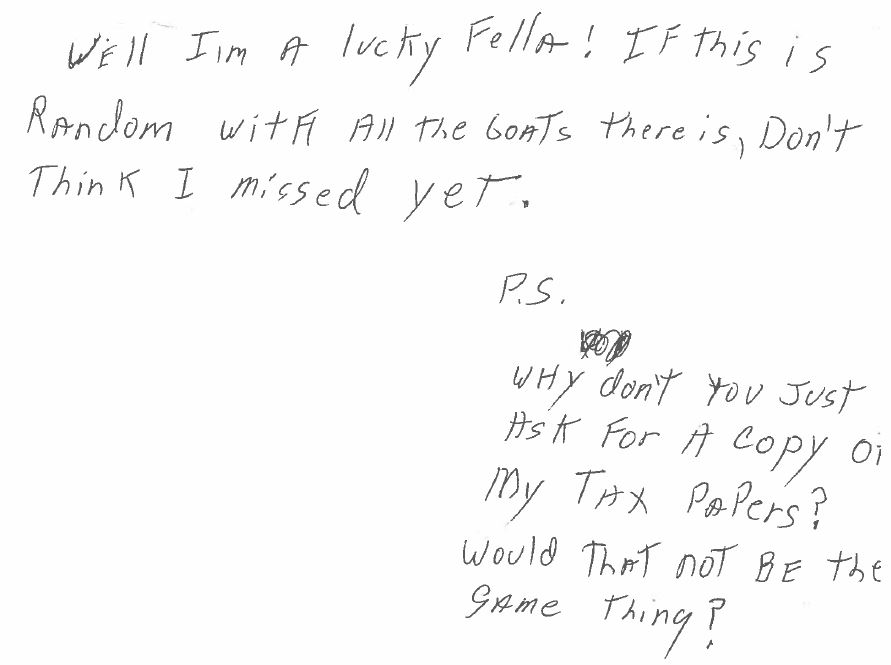 Well I'm A lucky Fella! IF this is
RAndom with All the GOATs there is, Don't
Think I missed yet.
P.S.
WHY don't You Just
Ask For A Copy
My TAX PAPers?
Would THAT not BE the
SAme Thing?